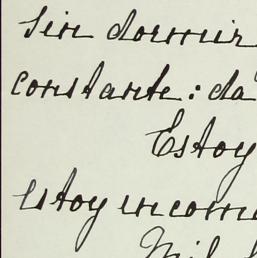 Sin dormir
constante: da
Estoy
estoy incomu
Mil